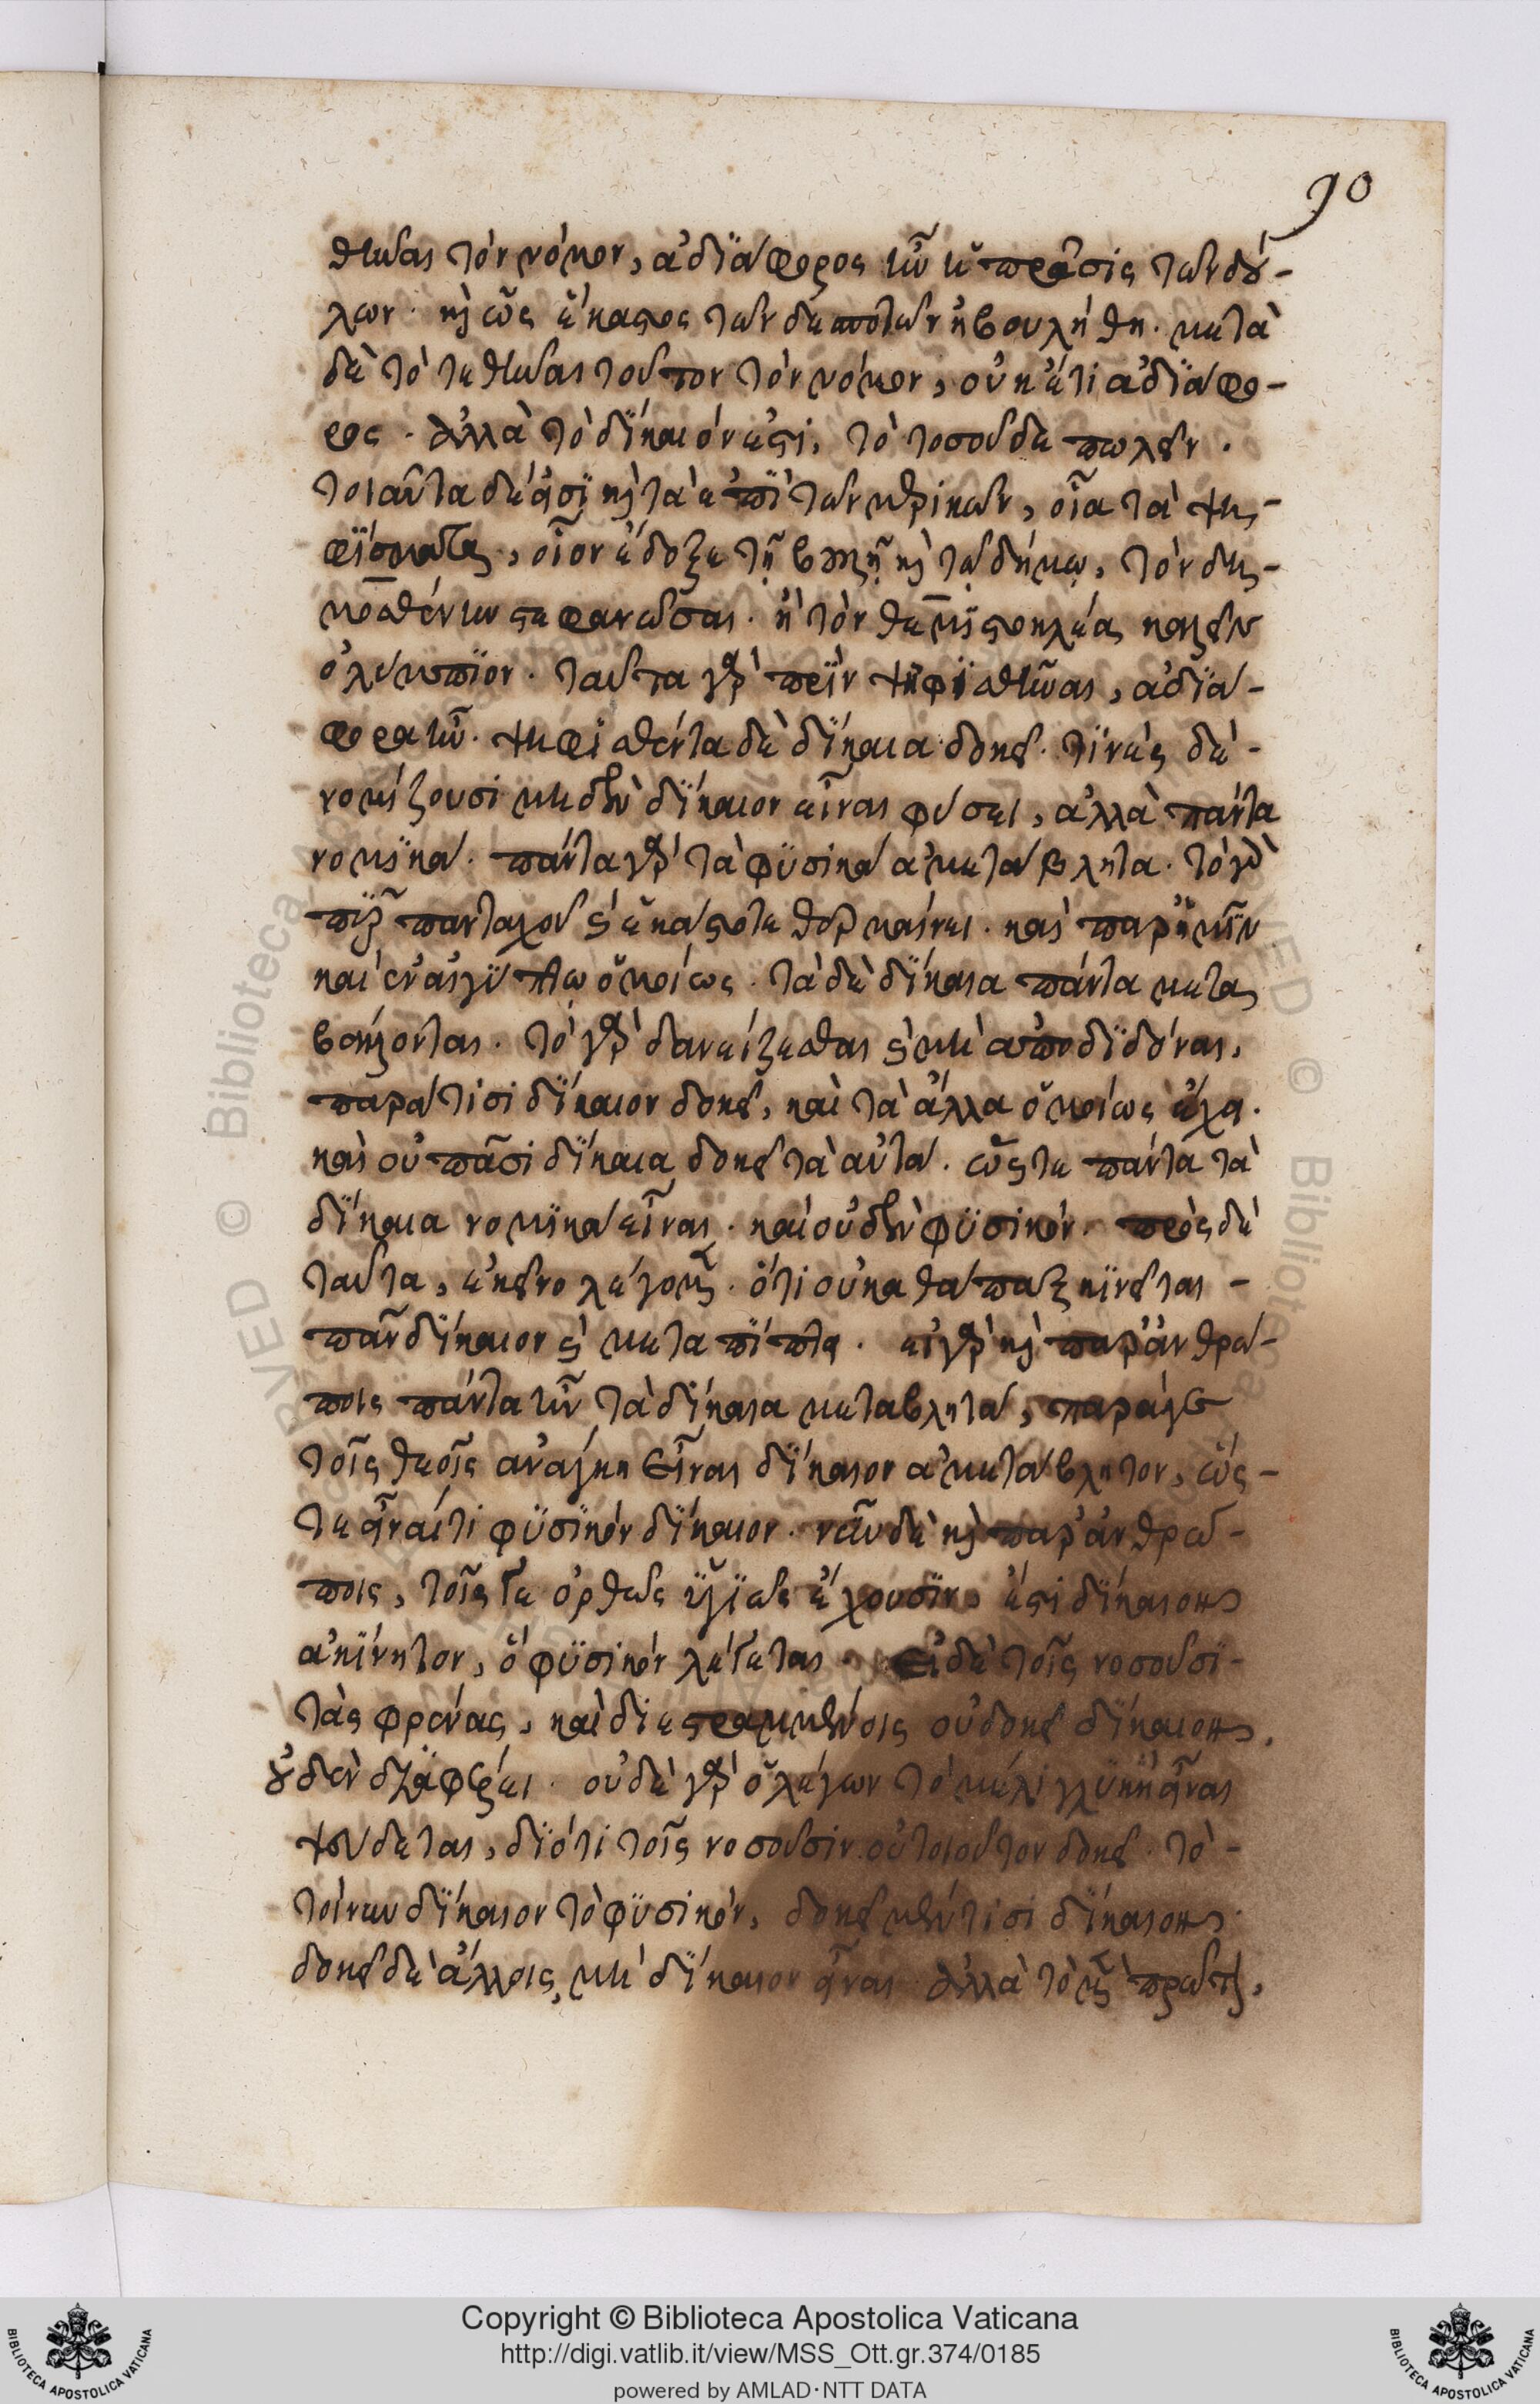 90
θῆναι τὸν νόμον, ἀδιάφορος ἦν ἡ πρᾶσις τῶν δού-
λων. καὶ ὡς ἕκαστος τῶν δεσποτῶν ἠβουλήθη. μετὰ
δὲ τὸ τεθῆναι τοῦτον τὸν νόμον, οὐκέτι ἀδιάφο-
ρος. ἀλλὰ τὸ δίκαιόν ἐστι, τὸ τοσοῦδε πωλεῖν.
τοιαῦτα δέ εἰσι καὶ τὰ ἐπὶ τῶν μερικῶν, οἷα τὰ ψη-
φίσματα, οἷον ἔδοξε τῇ βουλῇ καὶ τῷ δήμῳ, τὸν δη-
μοσθένην στεφανῶσαι. ἢ τὸν θεμιστοκλέα καλεῖν
ὀλύμπιον. ταῦτα γὰρ πρὶν ψηφισθῆναι, ἀδιά-
φορα ἦν. ψηφισθέντα δὲ δίκαια δοκεῖ. τινὲς δὲ
νομίζουσι μηδὲν δίκαιον εἶναι φύσει, ἀλλὰ πάντα
νομικά. πάντα γὰρ τὰ φυσικὰ ἀμετάβλητα. τὸ γὰρ
πῦρ πανταχοῦ καὶ ἑκάστοτε θερμαίνει. καὶ παρ' ἡμῖν
καὶ ἐν αἰγύπτῳ ὁμοίως. τὰ δὲ δίκαια πάντα μετα
βάλλονται. τὸ γὰρ δανείζεσθαι καὶ μὴ ἀποδιδόναι,
παρά τισι δίκαιον δοκεῖ, καὶ τὰ ἄλλα ὁμοίως ἔχει.
καὶ οὐ πᾶσι δίκαια δοκεῖ τὰ αὐτά. ὥστε πάντα τὰ
δίκαια νομικὰ εἶναι. καὶ οὐδὲν φυσικόν. πρὸς δὲ
ταῦτα, ἐκεῖνο λέγομεν. ὅτι οὐ καθάπαξ κινεῖται
πᾶν δίκαιον καὶ μεταπίπτει. εἰ γὰρ καὶ παρ' ἀνθρώ-
ποις πάντα ἦν τὰ δίκαια μεταβλητά, παρά γε
τοῖς θεοῖς ἀνάγκη εἶναι δίκαιον ἀμετάβλητον, ὥσ-
τε εἶναί τι φυσικὸν δίκαιον. νῦν δὲ καὶ παρ' ἀνθρώ-
ποις, τοῖς γε ὀρθῶς ὑγιῶς ἔχουσιν, ἔστι δίκαιον
ἀκίνητον, ὃ φυσικὸν λέγεται. εἰ δὲ τοῖς νοσοῦσι
τὰς φρένας, καὶ διεστραμμένοις οὐ δοκεῖ δίκαιον,
οὐδὲν διαφέρει. οὐδὲ γὰρ ὁ λέγων τὸ μέλι γλυκὺ εἶναι
ψεύδεται, διότι τοῖς νοσοῦσιν οὐ τοιοῦτον δοκεῖ. τὸ
τοίνυν δίκαιον τὸ φυσικόν, δοκεῖ μέν τισι δίκαιον
δοκεῖ δὲ ἄλλοις, μὴ δίκαιον εἶναι ἀλλὰ τὸ μὲν πρῶτον,
Copyright © Biblioteca Apostolica Vaticana
http://digi.vatlib.it/view/MSS_Ott.gr.374/0185
powered by AMLAD·NTT DATA